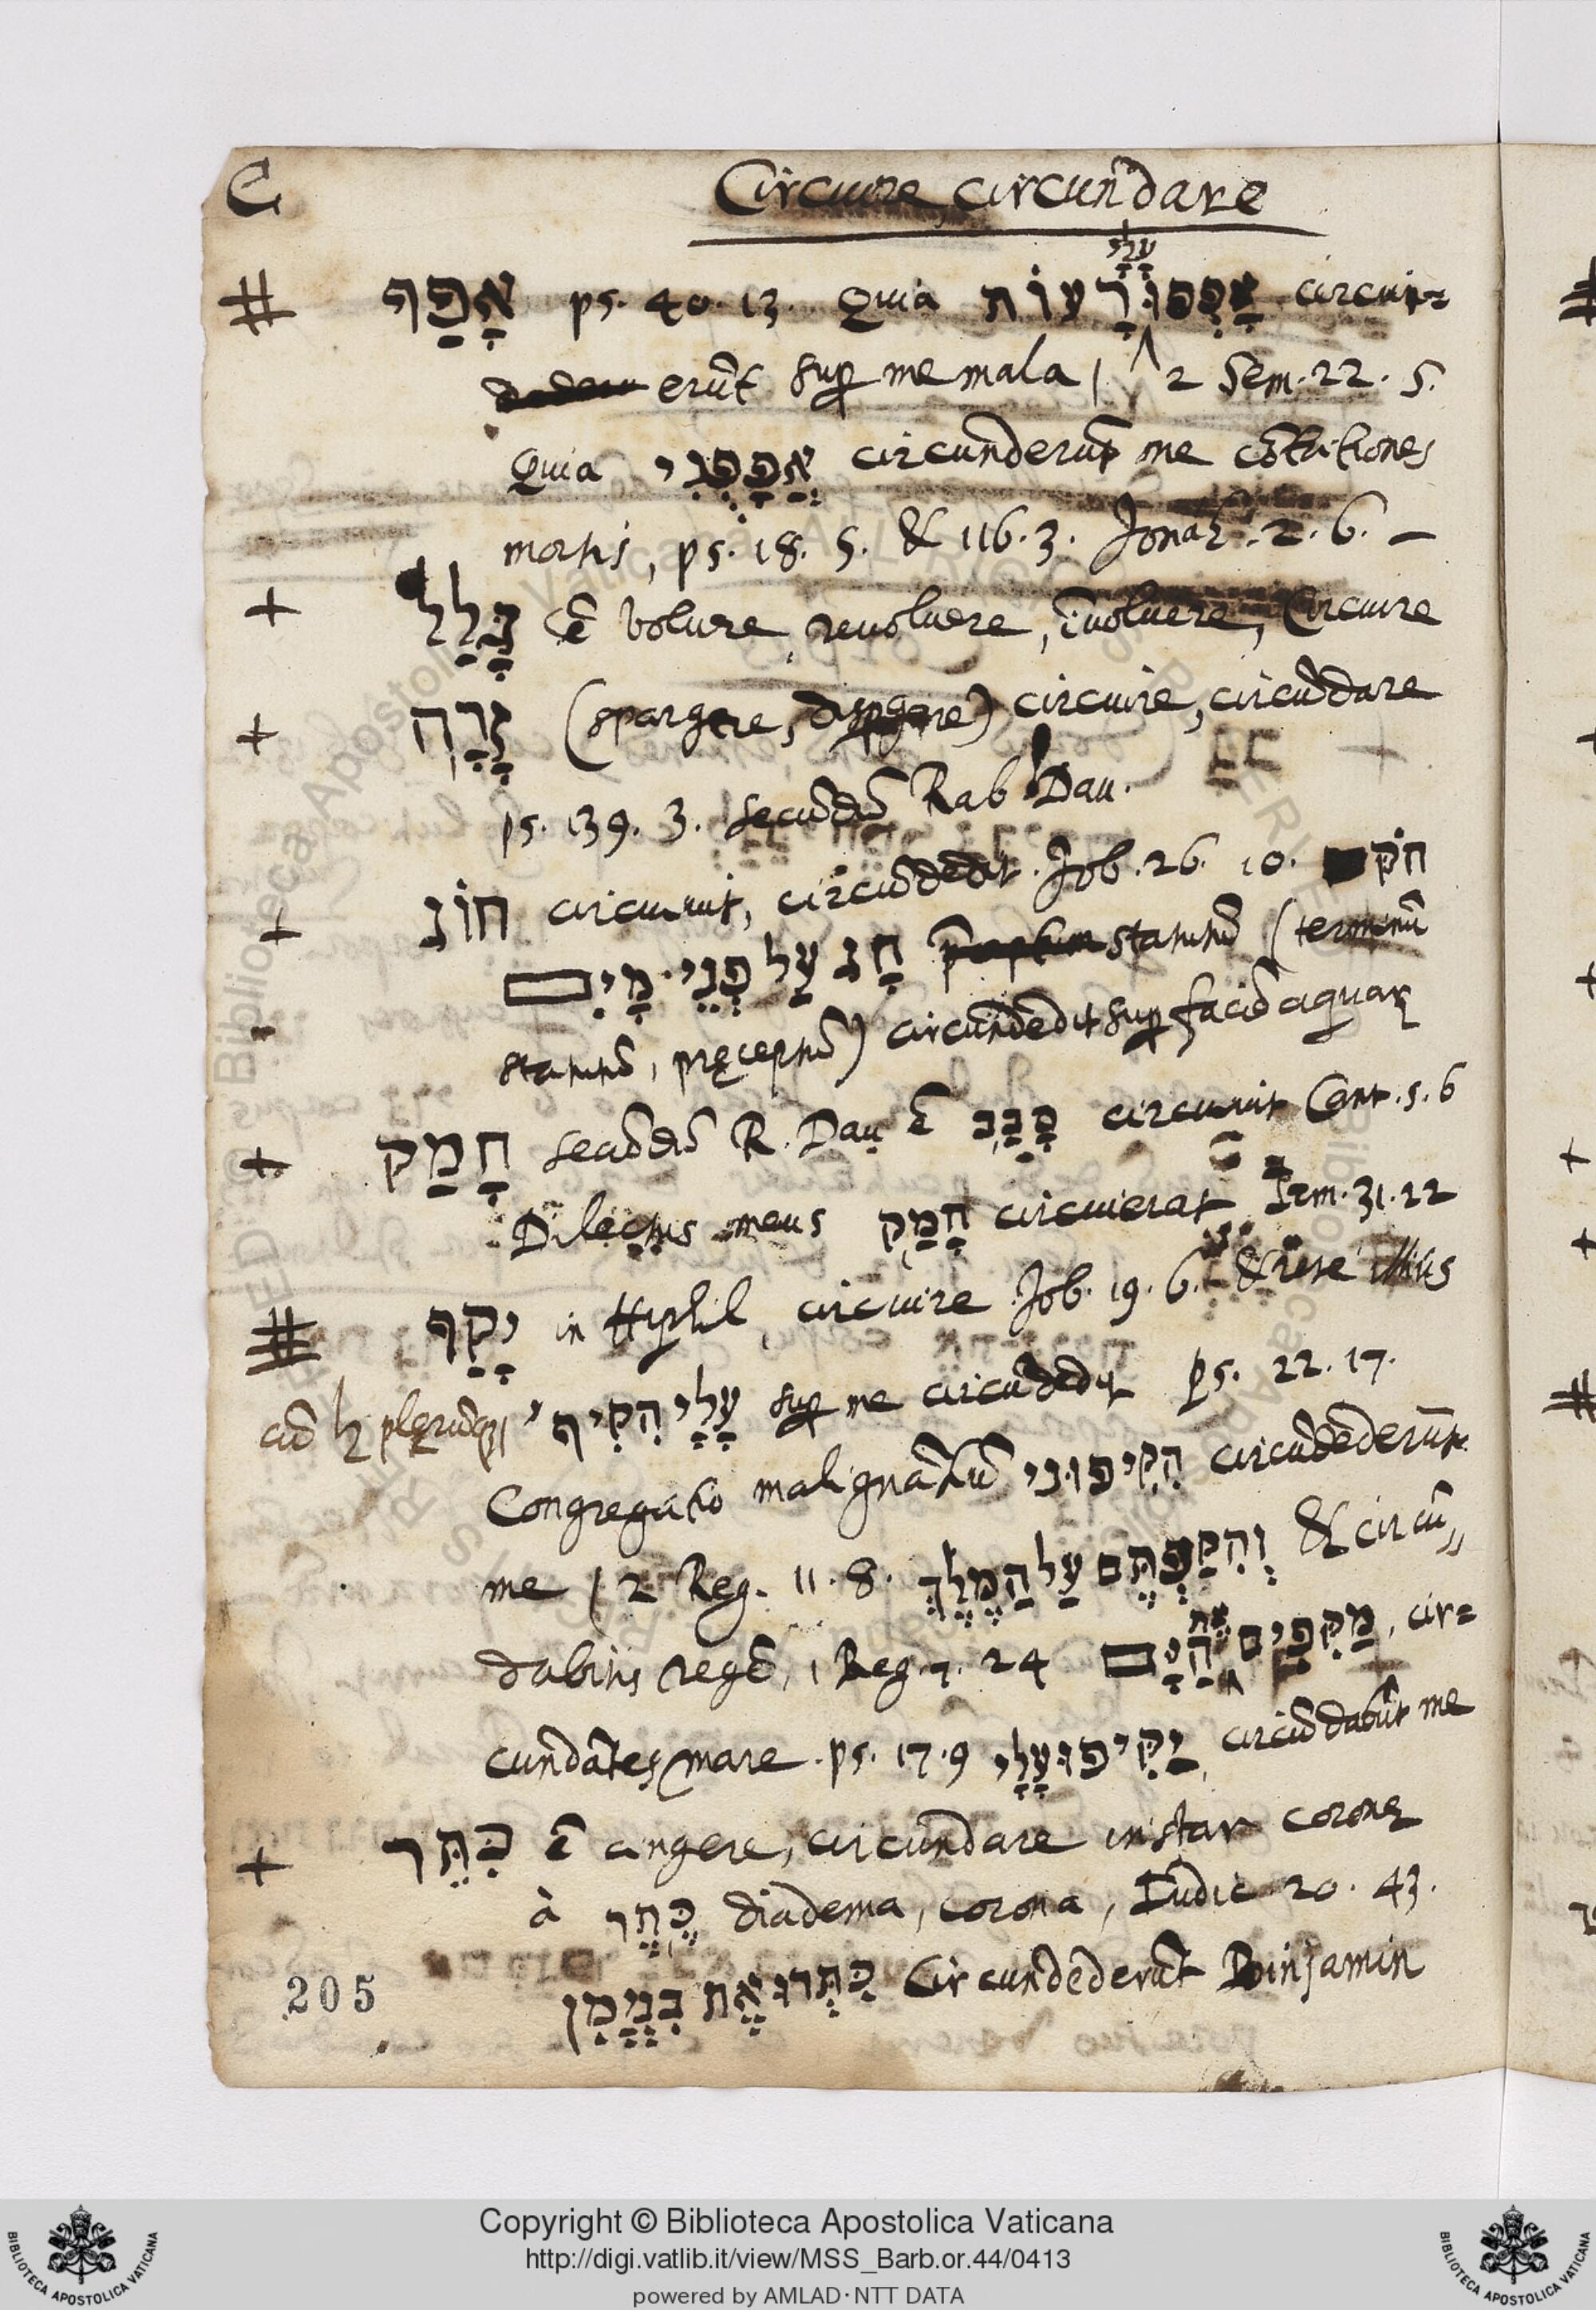 C
Circuire, circun̄dare
# אָפַף ps. 40. 13. Quia אָפְפוּ עָלַי רָעוֹת circui=
erūt sup me mala / 2 Sem. 22. 5.
Quia אֲפָפֻנִי circun̄derūt me cōtritiones
mortis, ps. 18. 5. & 116. 3. Jonah. 2. 6. –
+ גָּלַל ē volvere, revolvere, īvolvere, Circuire
+ זָרָה (spargere, dispgere) circuire, circūdare
ps. 139. 3. secūdū Rab Dau.
+ חוּג circuivit, circūdedit. Job. 26. 10. חֹק
חָג עַל פְּנֵי מָיִם statutū (terminū
statutū, pręceptū) circūndedit sup faciē aquar
+ חָמַק secūdū R. Dau ē סָבַב circuivit Cant. 5. 6
Dilectus meus חָמַק circuierat Irm. 31. 22
# יָקַף in Hiphil, circuire Job. 19. 6. & rete illius
עָלַי הִקִּיף sup me circūdedit ps. 22. 17.
Congregatio malignātiū הִקִּיפוּנִי circūdederūt
me / 2 Reg. 11. 8. וְהִקַּפְתֶּם עַל הַמֶּלֶךְ & circū„
dabitis regē, 1 Reg. 7. 24 מַקִּפִים אֶת הַיָּם, cir=
cundātes mare. ps. 17. 9 יַקִּיפוּ עָלָי, circūdabūt me
+ כִּתֶּר ē cingere, circūndare instar coronę
à כֶּתֶר diadema, corona, Iudic 20. 43.
כִּתְּרוּ אֶת בִּנְיָמִן Circundederūt Binjamin
205
Copyright © Biblioteca Apostolica Vaticana
http://digi.vatlib.it/view/MSS_Barb.or.44/0413
powered by AMLAD·NTT DATA
BIBLIOTECA APOSTOLICA VATICANA
BIBLIOTECA APOSTOLICA VATICANA